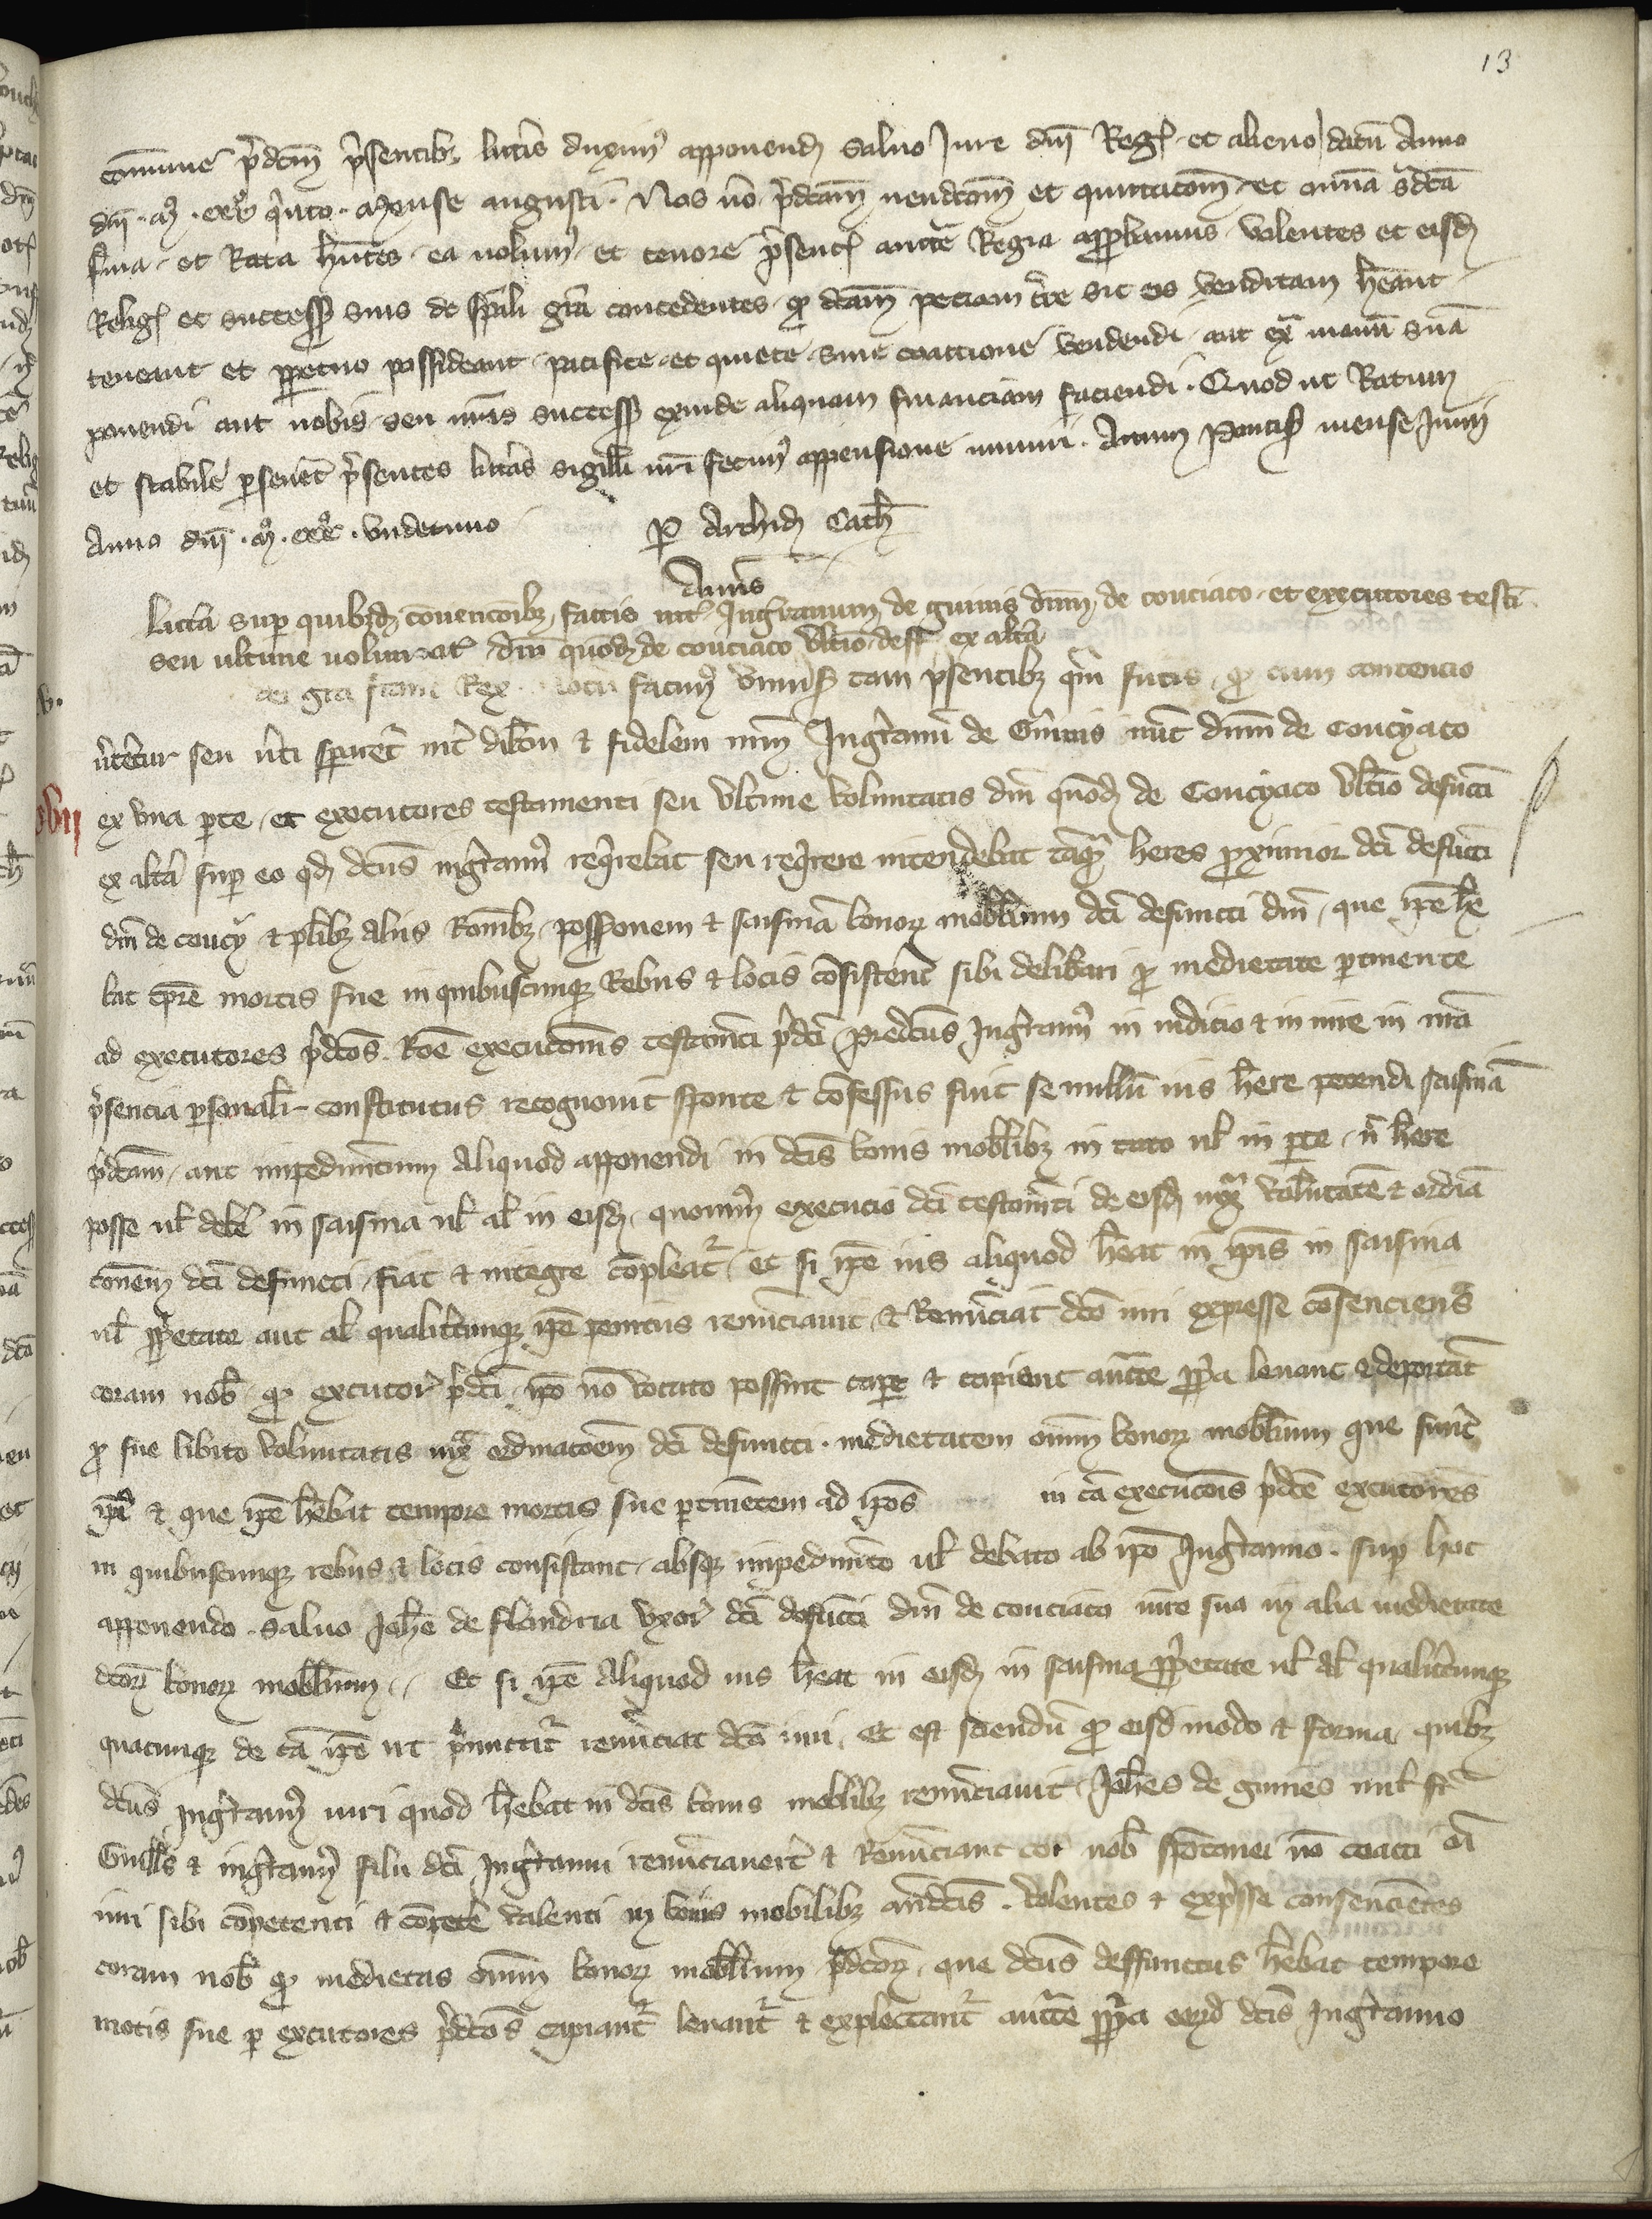 13
com̄une p̄dcm̄ p̄sentibꝫ litt̄is duximꝰ apponendꝫ saluo Jure dn̄i Reg᷒ et alieno datū Anno
dn̄i · mͦ · cccͦ q̄nto · Mense augusti · Nos ūo p̄dc̄am uendc̄om̄ et quittac̄om̄ et om̄ia sͣdc̄a
firma · et Rata hn̄tes · ea volumꝰ · et tenore p̄senc᷒ auctē Regia approbamus · Volentes et eisdꝫ
Relig᷒ et success᷒ suis de sp̄ali grā concedentes · qꝫ dc̄am peciam t̄re sic eis venditam hēant
teneant et ꝑpetuo possideant · pacifice et quiete sine coactione vendendi · aut ex̄ manū suā
ponendi aut nobis seu nr̄is success᷒ exinde aliquam financiam faciendi · Quod ut Ratum
et stabile ꝑseūet p̄sentes litt̄as sigilli nr̄i fecimꝰ appensione muniri · Actum Pontis᷒ mense Junii
Anno dn̄i · mͦ · cccͦ · vndecimo ꝑ Archidꝫ Cath̄
Litt̄a suꝑ quibusdꝫ convencōibꝫ factis int̄ Ingr̄anum de guinis dn̄m de couciaco et executores testī
seu ultime voluntat᷒ dn̄i quōdꝫ de couciaco ultīo deff᷒ ex alt̄a
dei grā francꝫ Rex · notū facimꝰ vniuīs᷒ tam p̄sentibꝫ qͣm futīs · qꝫ cum contencio
ūtetur seu ūti speraret᷒ int̄ dilc̄m ⁊ fidelem nr̄m Ingr̄anū de Guinis nūc dn̄m de Coucyaco
ex vna ꝑte · et executores testamenti seu Vltime voluntatis dn̄i quōdꝫ de Coucyaco Vltīo defūcti
ex alt̄a suꝑ eo qđ dc̄us ingr̄anꝰ req̄rebat seu req̄rere intendebat tāqͣꝫ heres ꝓximior dc̄i defūcti
dn̄i de coucy ⁊ pl̄ibꝫ aliis Rōnibꝫ · possōnem ⁊ saisinā bonoꝝ mobiliū dc̄i defuncti dn̄i · que ip̄e hē
bat tp̄re mortis sue in quibuscunqꝫ Rebus ⁊ locis cōsistent᷒ sibi delibari ꝓ medietate ꝑtinente
ad executores p̄dc̄os Rōe execucōnis testam̄ti p̄dc̄i · Predc̄us Ingr̄anꝰ in iudicio ⁊ in iure in nr̄a
p̄sencia ꝑsonalr̄ constitutus recognouit sponte ⁊ cōfessus fuit se nullū ius h̄ere petendi saisinā
p̄dc̄am · aut impedimētum aliquod apponendi in dc̄is bonis mobilibꝫ in toto ul̄ in ꝑte · n̄c h̄ere
posse ul̄ debē in saisina ul̄ al̄ in eisdꝫ · quominꝰ execucio dc̄i testam̄ti de eisdꝫ iuxͣ vol̄untatē ⁊ ordīa
cōnem dc̄i defuncti · fiat ⁊ integre cōpleat᷒ · et si ip̄e ius aliquod h̄eat in ip̄is in saisina
ul̄ ꝓp̄etate aut al̄ qualitc̄unqꝫ ip̄e penitus renūciauit ⁊ Renūciat dc̄o iuri expresse cōsenciens
coram nob̄ · qꝫ executor᷒ p̄dc̄i · ip̄o nō vocato possint capē ⁊ capient auctē ꝓp̄a leuant ⁊ deportāt
ꝓ sue libito voluntatis iuxͣ ordinatōem dc̄i defuncti · medietatem om̄iū bonoꝝ mobiliū que sunt᷒
ip̄iꝰ ⁊ que ip̄e h̄ebat tempore mortis sue ꝑtinētem ad ip̄os in cā execucōis p̄dc̄e executores
in quibuscunqꝫ rebus ⁊ locis consistant · absqꝫ impedim̄to ul̄ debato ab ip̄o Ingr̄anno · suꝑ hoc
apponendo · saluo Joh̄e de flandria vxor᷒ dc̄i defūcti dn̄i de couciaco iure suo in alia medietate
dc̄oꝝ bonoꝝ mobiliū · Et si ip̄e aliquod ius h̄eat in eisdꝫ in saisina ꝓp̄etate ul̄ al̄ qualitc̄unqꝫ
quacunqꝫ de cā ip̄e ut p̄mittit᷒ renūciat dc̄o iuri · Et est sciendū qꝫ eisđ modo ⁊ forma quibꝫ
dc̄us Ingr̄anꝰ iuri quod h̄ebat in dc̄is bonis mobilibꝫ renūciauit · Joh̄es de guines mil᷒ fr̄
Guill̄s ⁊ ingr̄anꝰ filii dc̄i Ingr̄anni renūciauerūt ⁊ Renūciant cor̄ nob̄ spōtanei nō coacti oī
iuri sibi cōpetenti ⁊ cōpetē valenti in bonis mobilibꝫ an̄dc̄is · Volentes ⁊ exp̄sse consencientes
coram nob̄ qꝫ medietas om̄iū bonoꝝ mobilium p̄dc̄oꝝ · que dc̄us deffunctus h̄ebat tempore
mortis sue ꝑ executores p̄dc̄os capiant᷒ leuant᷒ ⁊ explectant᷒ auctē ꝓp̄a eoꝝđ dc̄is Ingr̄anno